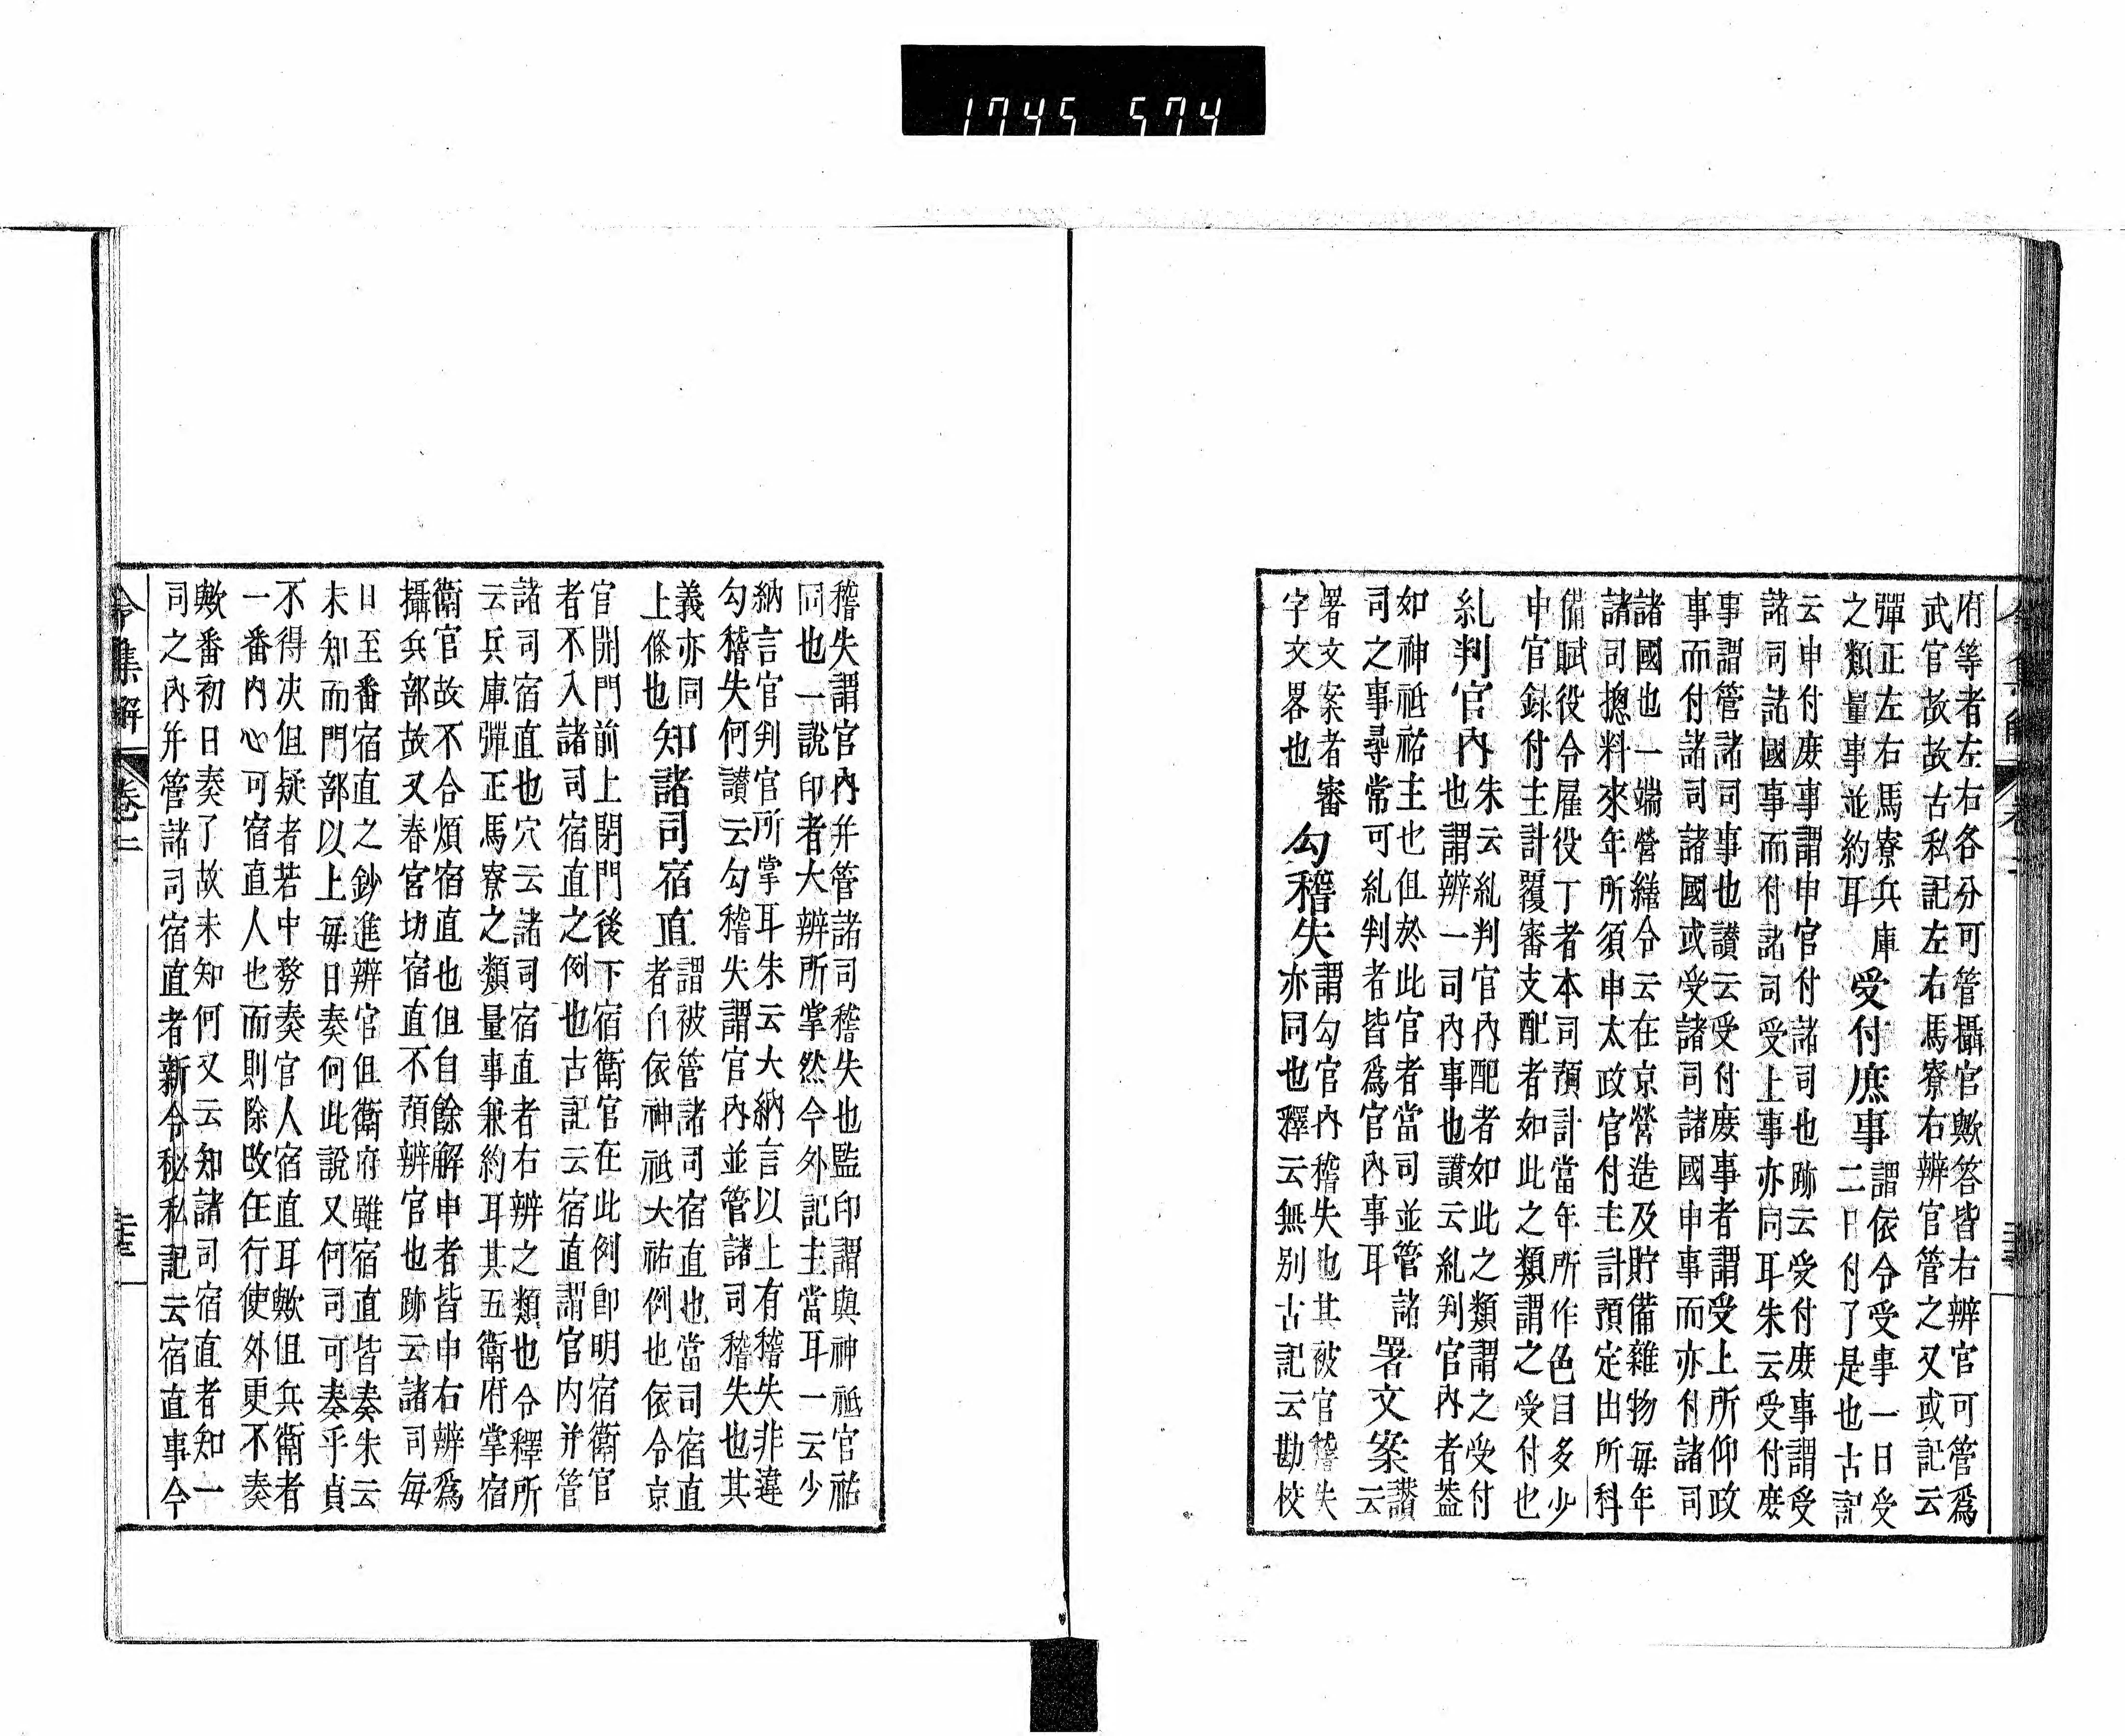 1745 574
府等者左右各分可管攝官歟答皆右辨官可管爲
武官故故古私記左右馬寮右辨官管之又或記云
彈正左右馬寮兵庫
之類量事並約耳
受付庶事
謂依令受事一日受
二日付了是也古記
云申付庻事謂申官付諸司也跡云受付庻事謂受
諸司諸國事而付諸司受上事亦同耳朱云受付庻
事謂管諸司事也讃云受付庻事者謂受上所仰政
事而付諸司諸國或受諸司諸國申事而亦付諸司
諸國也一端營繕令云在京營造及貯備雜物每年
諸司摠料來年所須申太政官付主計預定出所科
備賦役令雇役丁者本司預計當年所作色目多少
申官録付主計覆審支配者如此之類謂之受付也
糺判官內
朱云糺判官內配者如此之類謂之受付
也謂辨一司內事也讃云糺判官內者葢
如神祇祐主也但於此官者當司並管諸
司之事尋常可糺判者皆爲官內事耳
署文案
讃云
署文案者審
字文畧也
勾稽失
謂勾官內稽失也其被官稽失
亦同也釋云無別古記云勘校
令集解 卷二
稽失謂官內幷管諸司稽失也監印謂與神祇官祐
同也一說印者大辨所掌然今外記主當耳一云少
納言官判官所掌耳朱云大納言以上有稽失非違
勾稽失何讃云勾稽失謂官內並管諸司稽失也其
義亦同
上條也
知諸司宿直
謂被管諸司宿直也當司宿直
者自依神祇大祐例也依令京
官開門前上閉門後下宿衛官在此例卽明宿衛官
者不入諸司宿直之例也古記云宿直謂官內幷管
諸司宿直也穴云諸司宿直者右辨之類也令釋所
云兵庫彈正馬寮之類量事兼約耳其五衛府掌宿
衛官故不合煩宿直也但自餘解申者皆申右辨爲
攝兵部故又春宮坊宿直不預辨官也跡云諸司每
日至番宿直之鈔進辨官但衛府雖宿直皆奏朱云
未知而門門部以上每日奏何此說又何司可奏乎貞
不得决但疑者若中務奏官人宿直耳歟但兵衛者
一番內心可宿直人也而則除改任行使外更不奏
歟番初日奏了故未知何又云知諸司宿直者知一
司之內幷管諸司宿直者新令秘私記云宿直事今
令集解 卷二